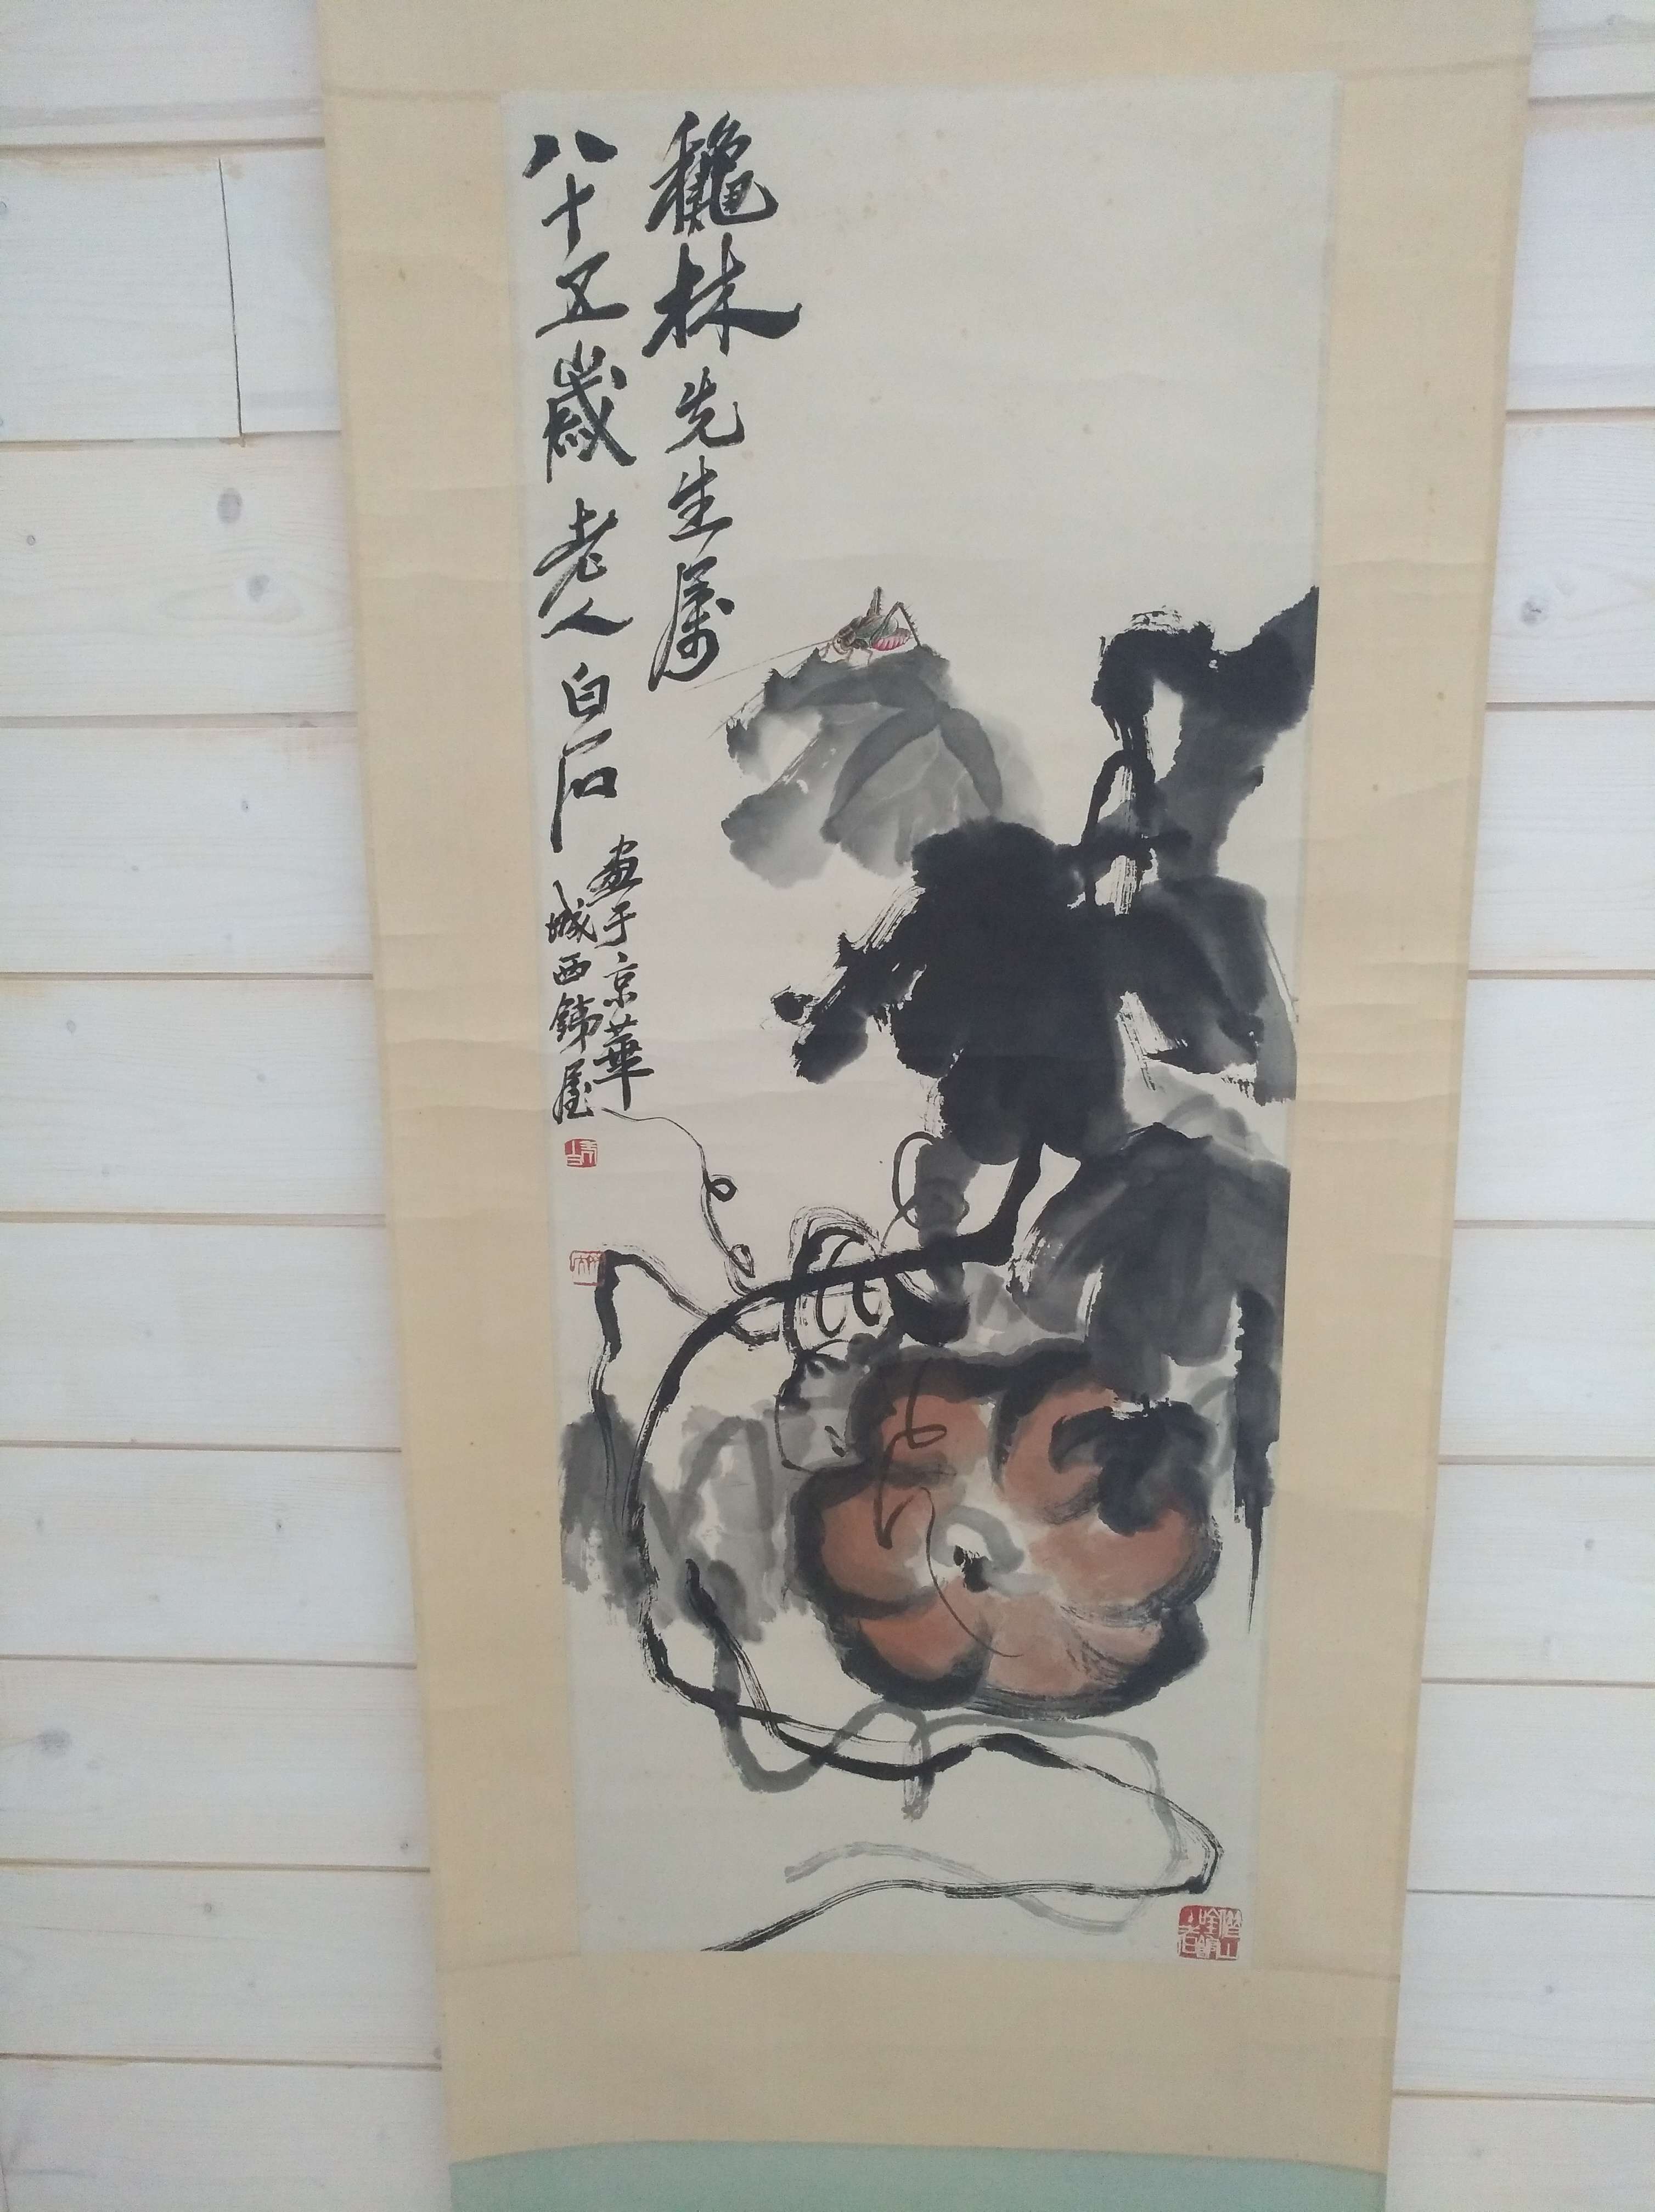 龝林先生属
八十五歲老人白石
畫于京華
城西鐵屋